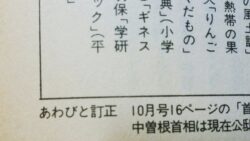 風土記
熱帯の果
『りんご
くだもの
典』(小学
『ギネス
保『学研
ック』(平
あわびと訂正 10月号16ページの「首
中曽根首相は現在公邸